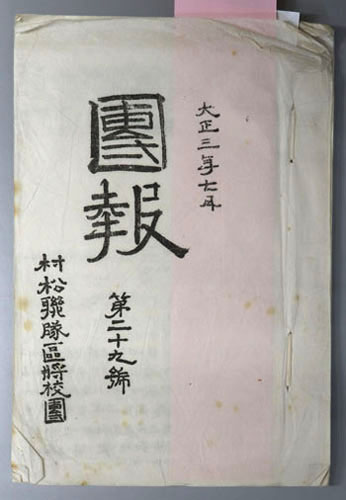 大正三年七月
團報
第二十九號
村松聯隊區將校團